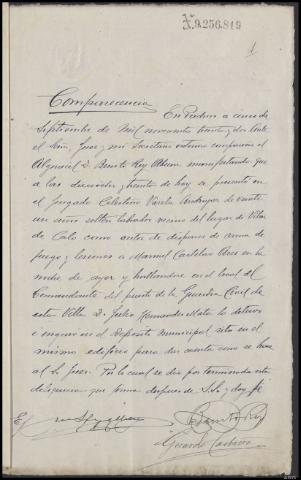 Nº 9.256.819
1
Comparecencia
En Padrón a cinco de
Septiembre de Mil novecientos treinta y dos. Ante
el Sr. Juez y mi Secretario interino comparece el
Alguacil D. Benito Rey manifestando que
a las diecisiete y treinta de hoy se presentó en
el Juzgado Celestino Varela de veinte
un años soltero labrador vecino del lugar de Vilar
de Calo como autor de disparos de arma de
fuego y lesiones a Manuel Carlelos en la
noche de ayer y hallandose en el local del
Comandante del puesto de la Guardia Civil de
esta Villa D. Julio Hernandez Mata lo detuvo
e ingresó en el Depósito Municipal sito en el
mismo edificio para dar cuenta como se hace
al Sr. Juez. Con lo cual se dio por terminada esta
diligencia que firma despues de S.Sª y doy fe
Benito Rey
Gerardo